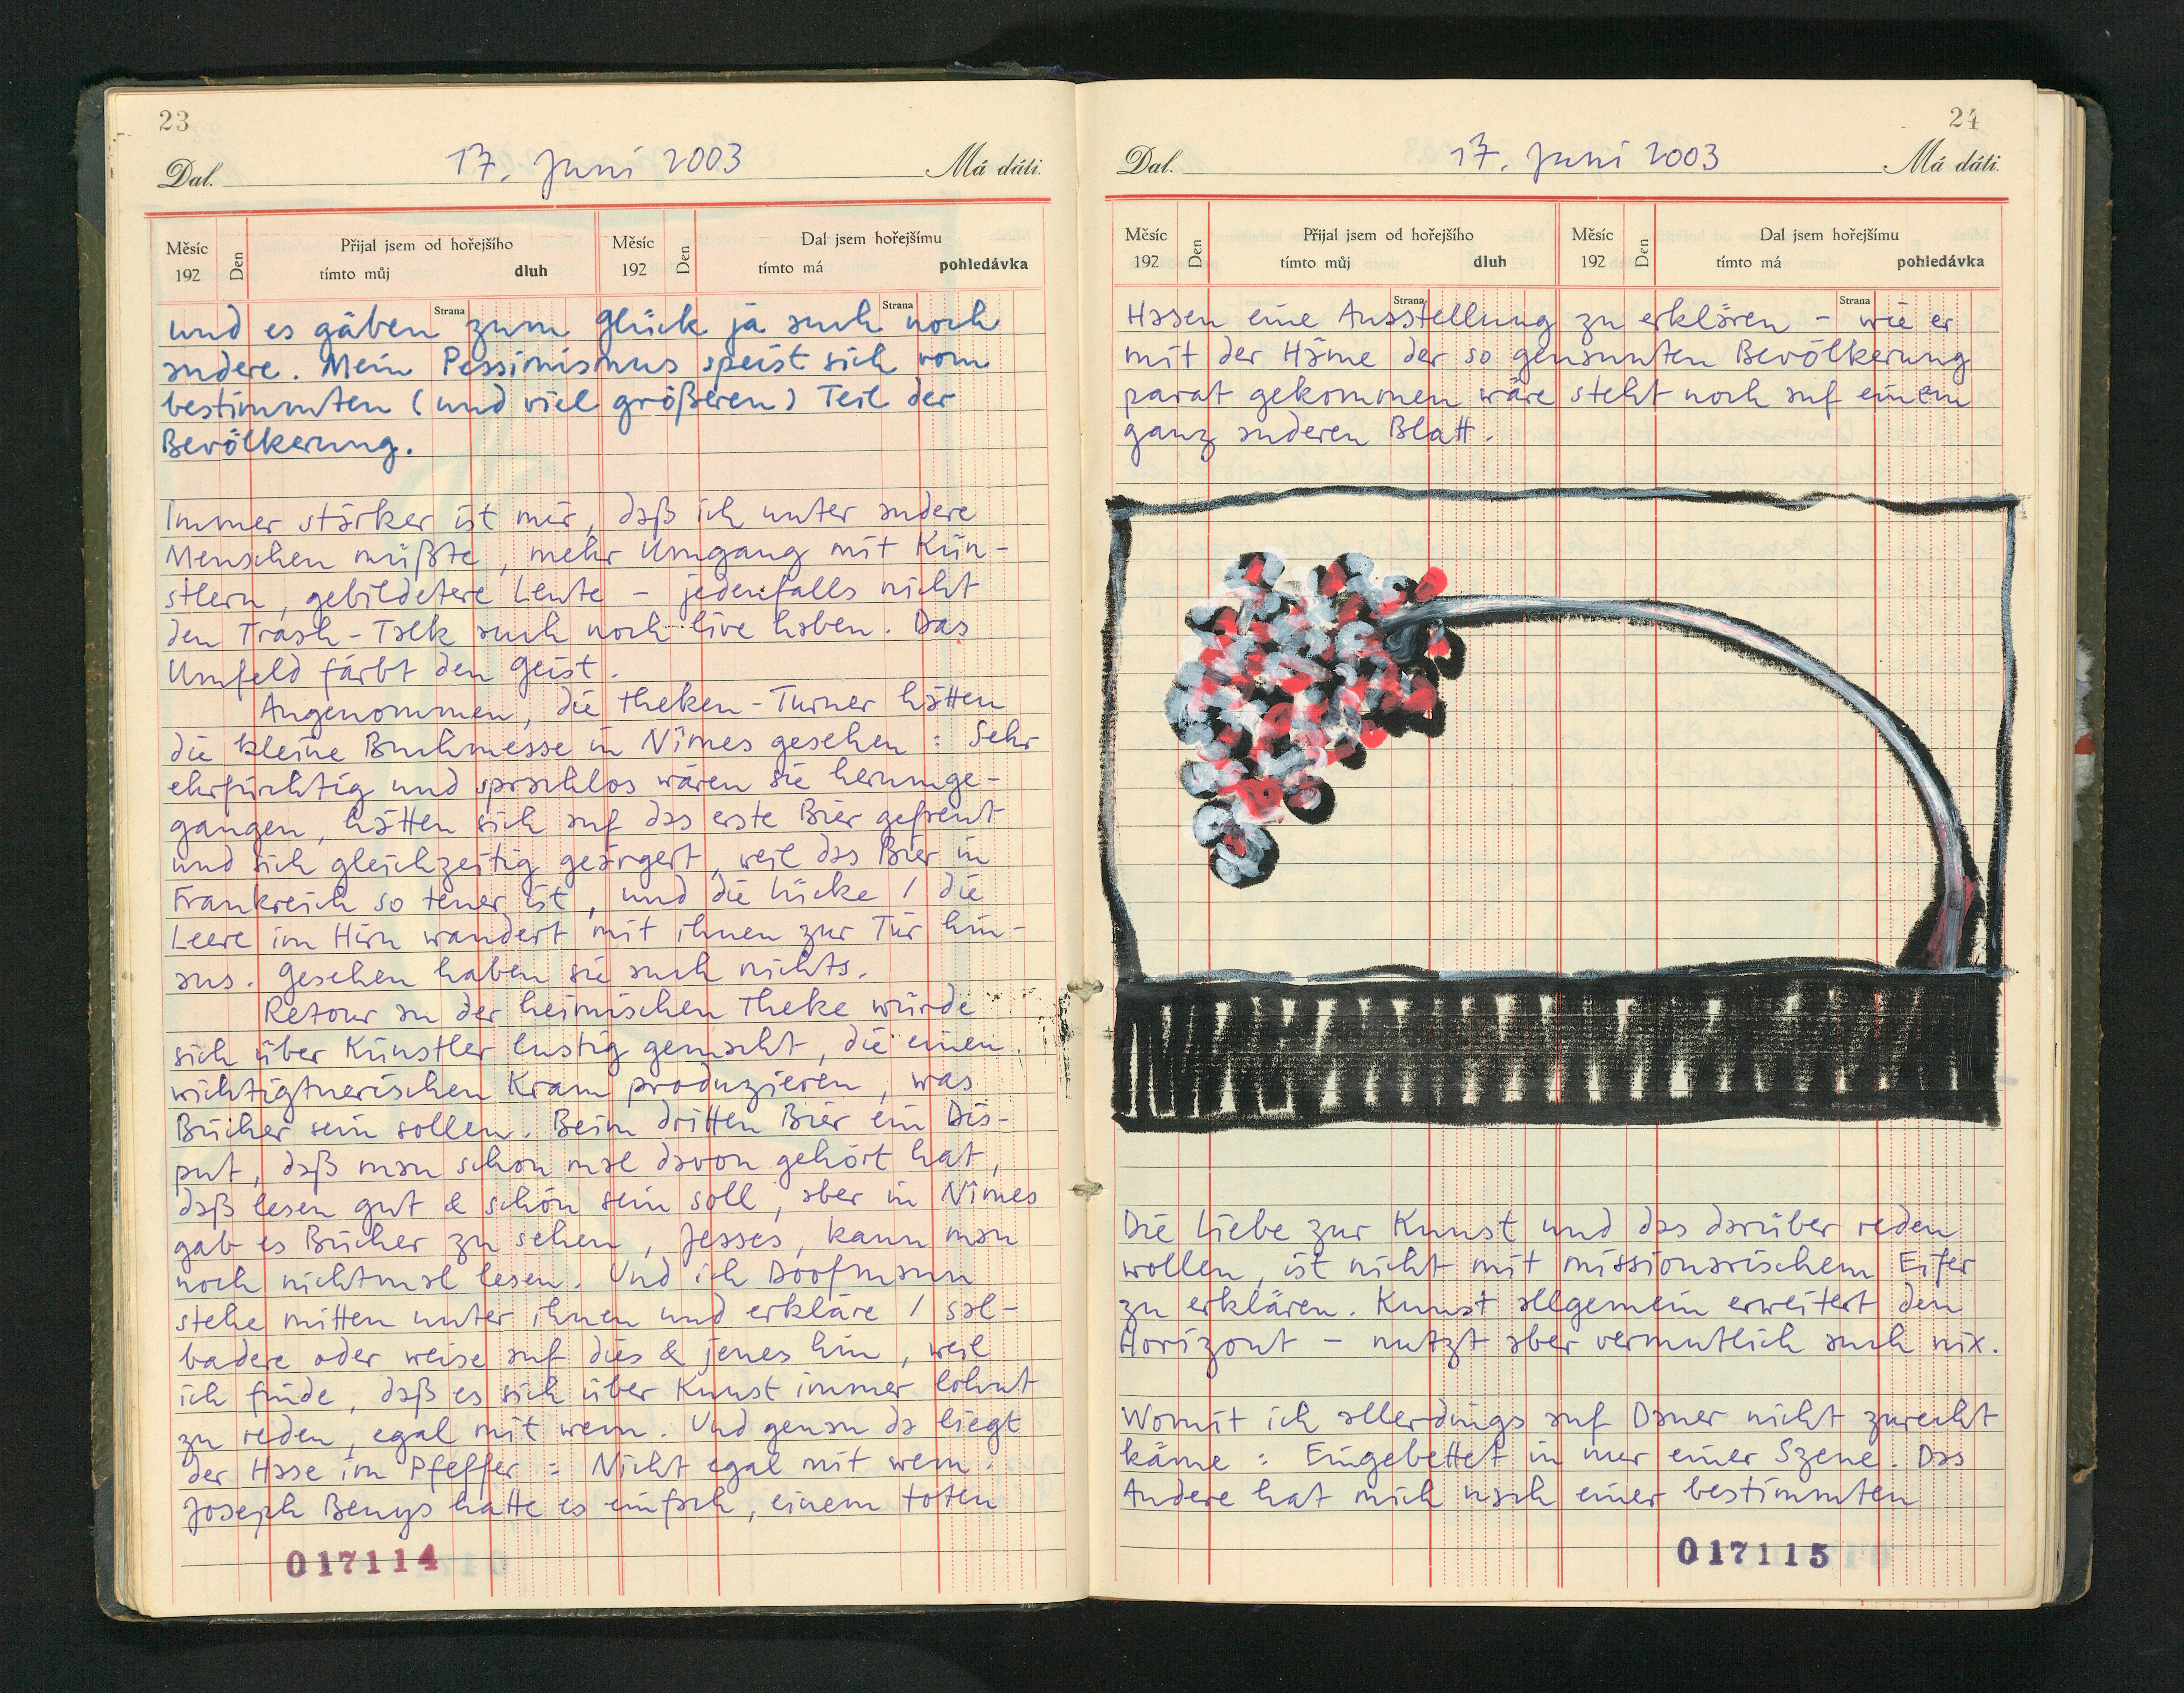 23
17. Juni 2003
Dal. Má dáti.
Měsíc Den Přijal jsem od hořejšího Měsíc Den Dal jsem hořejšímu
192 tímto můj dluh 192 tímto má pohledávka
Strana Strana
und es gäben zum Glück ja auch noch
andere. Mein Pessimismus speist sich vom
bestimmten (und viel größeren) Teil der
Bevölkerung.
Immer stärker ist mir, daß ich unter andere
Menschen müßte, mehr Umgang mit Kün-
stlern, gebildetere Leute – jedenfalls nicht
den Trash-Talk auch noch live haben. Das
Umfeld färbt den Geist.
Angenommen, die Theken-Turner hätten
die kleine Buchmesse in Nîmes gesehen: Sehr
ehrfürchtig und sprachlos wären sie herumge-
gangen, hätten sich auf das erste Bier gefreut
und sich gleichzeitig geärgert, weil das Bier in
Frankreich so teuer ist, und die Lücke / die
Leere im Hirn wandert mit ihnen zur Tür hin-
aus. Gesehen haben sie auch nichts.
Retour an der heimischen Theke würde
sich über Künstler lustig gemacht, die einen
wichtigtuerischen Kram produzieren, was
Bücher sein sollen. Beim dritten Bier ein Dis-
put, daß man schon mal davon gehört hat,
daß lesen gut & schön sein soll, aber in Nîmes
gab es Bücher zu sehen, Jesses, kann man
noch nichtmal lesen. Und ich Doofmann
stehe mitten unter ihnen und erkläre / sal-
badere oder weise auf dies & jenes hin, weil
ich finde, daß es sich über Kunst immer lohnt
zu reden, egal mit wem. Und genau da liegt
der Hase im Pfeffer: Nicht egal mit wem.
Joseph Beuys hatte es einfach, einem toten
017114
24
17. Juni 2003
Dal. Má dáti.
Měsíc Den Přijal jsem od hořejšího Měsíc Den Dal jsem hořejšímu
192 tímto můj dluh 192 tímto má pohledávka
Strana Strana
Hasen eine Ausstellung zu erklären – wie er
mit der Häme der so genannten Bevölkerung
parat gekommen wäre steht noch auf einem
ganz anderen Blatt.
Die Liebe zur Kunst und das darüber reden
wollen, ist nicht mit missionarischem Eifer
zu erklären. Kunst allgemein erweitert den
Horizont – nutzt aber vermutlich auch nix.
Womit ich allerdings auf Dauer nicht zurecht
käme: Eingebettet in nur einer Szene. Das
Andere hat mich nach einer bestimmten
017115